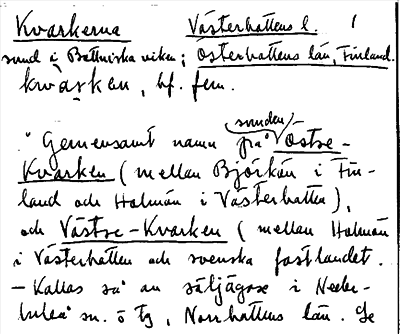 Kvarkerna Västerbottens l. 1
sund i Bottniska viken; Österbottens län, Finland.
kwarken, bf. fem.
sunden
"Gemensamt namn på Östre-
Kvarken (mellan Björkön i Fin-
land och Holmön i Västerbotten),
och Västre-Kvarken (mellan Holmön
i Västerbotten och svenska fastlandet.
- Kallas så av säljägare i Neder-
luleå sn. ö tg, Norrbottens län. Se